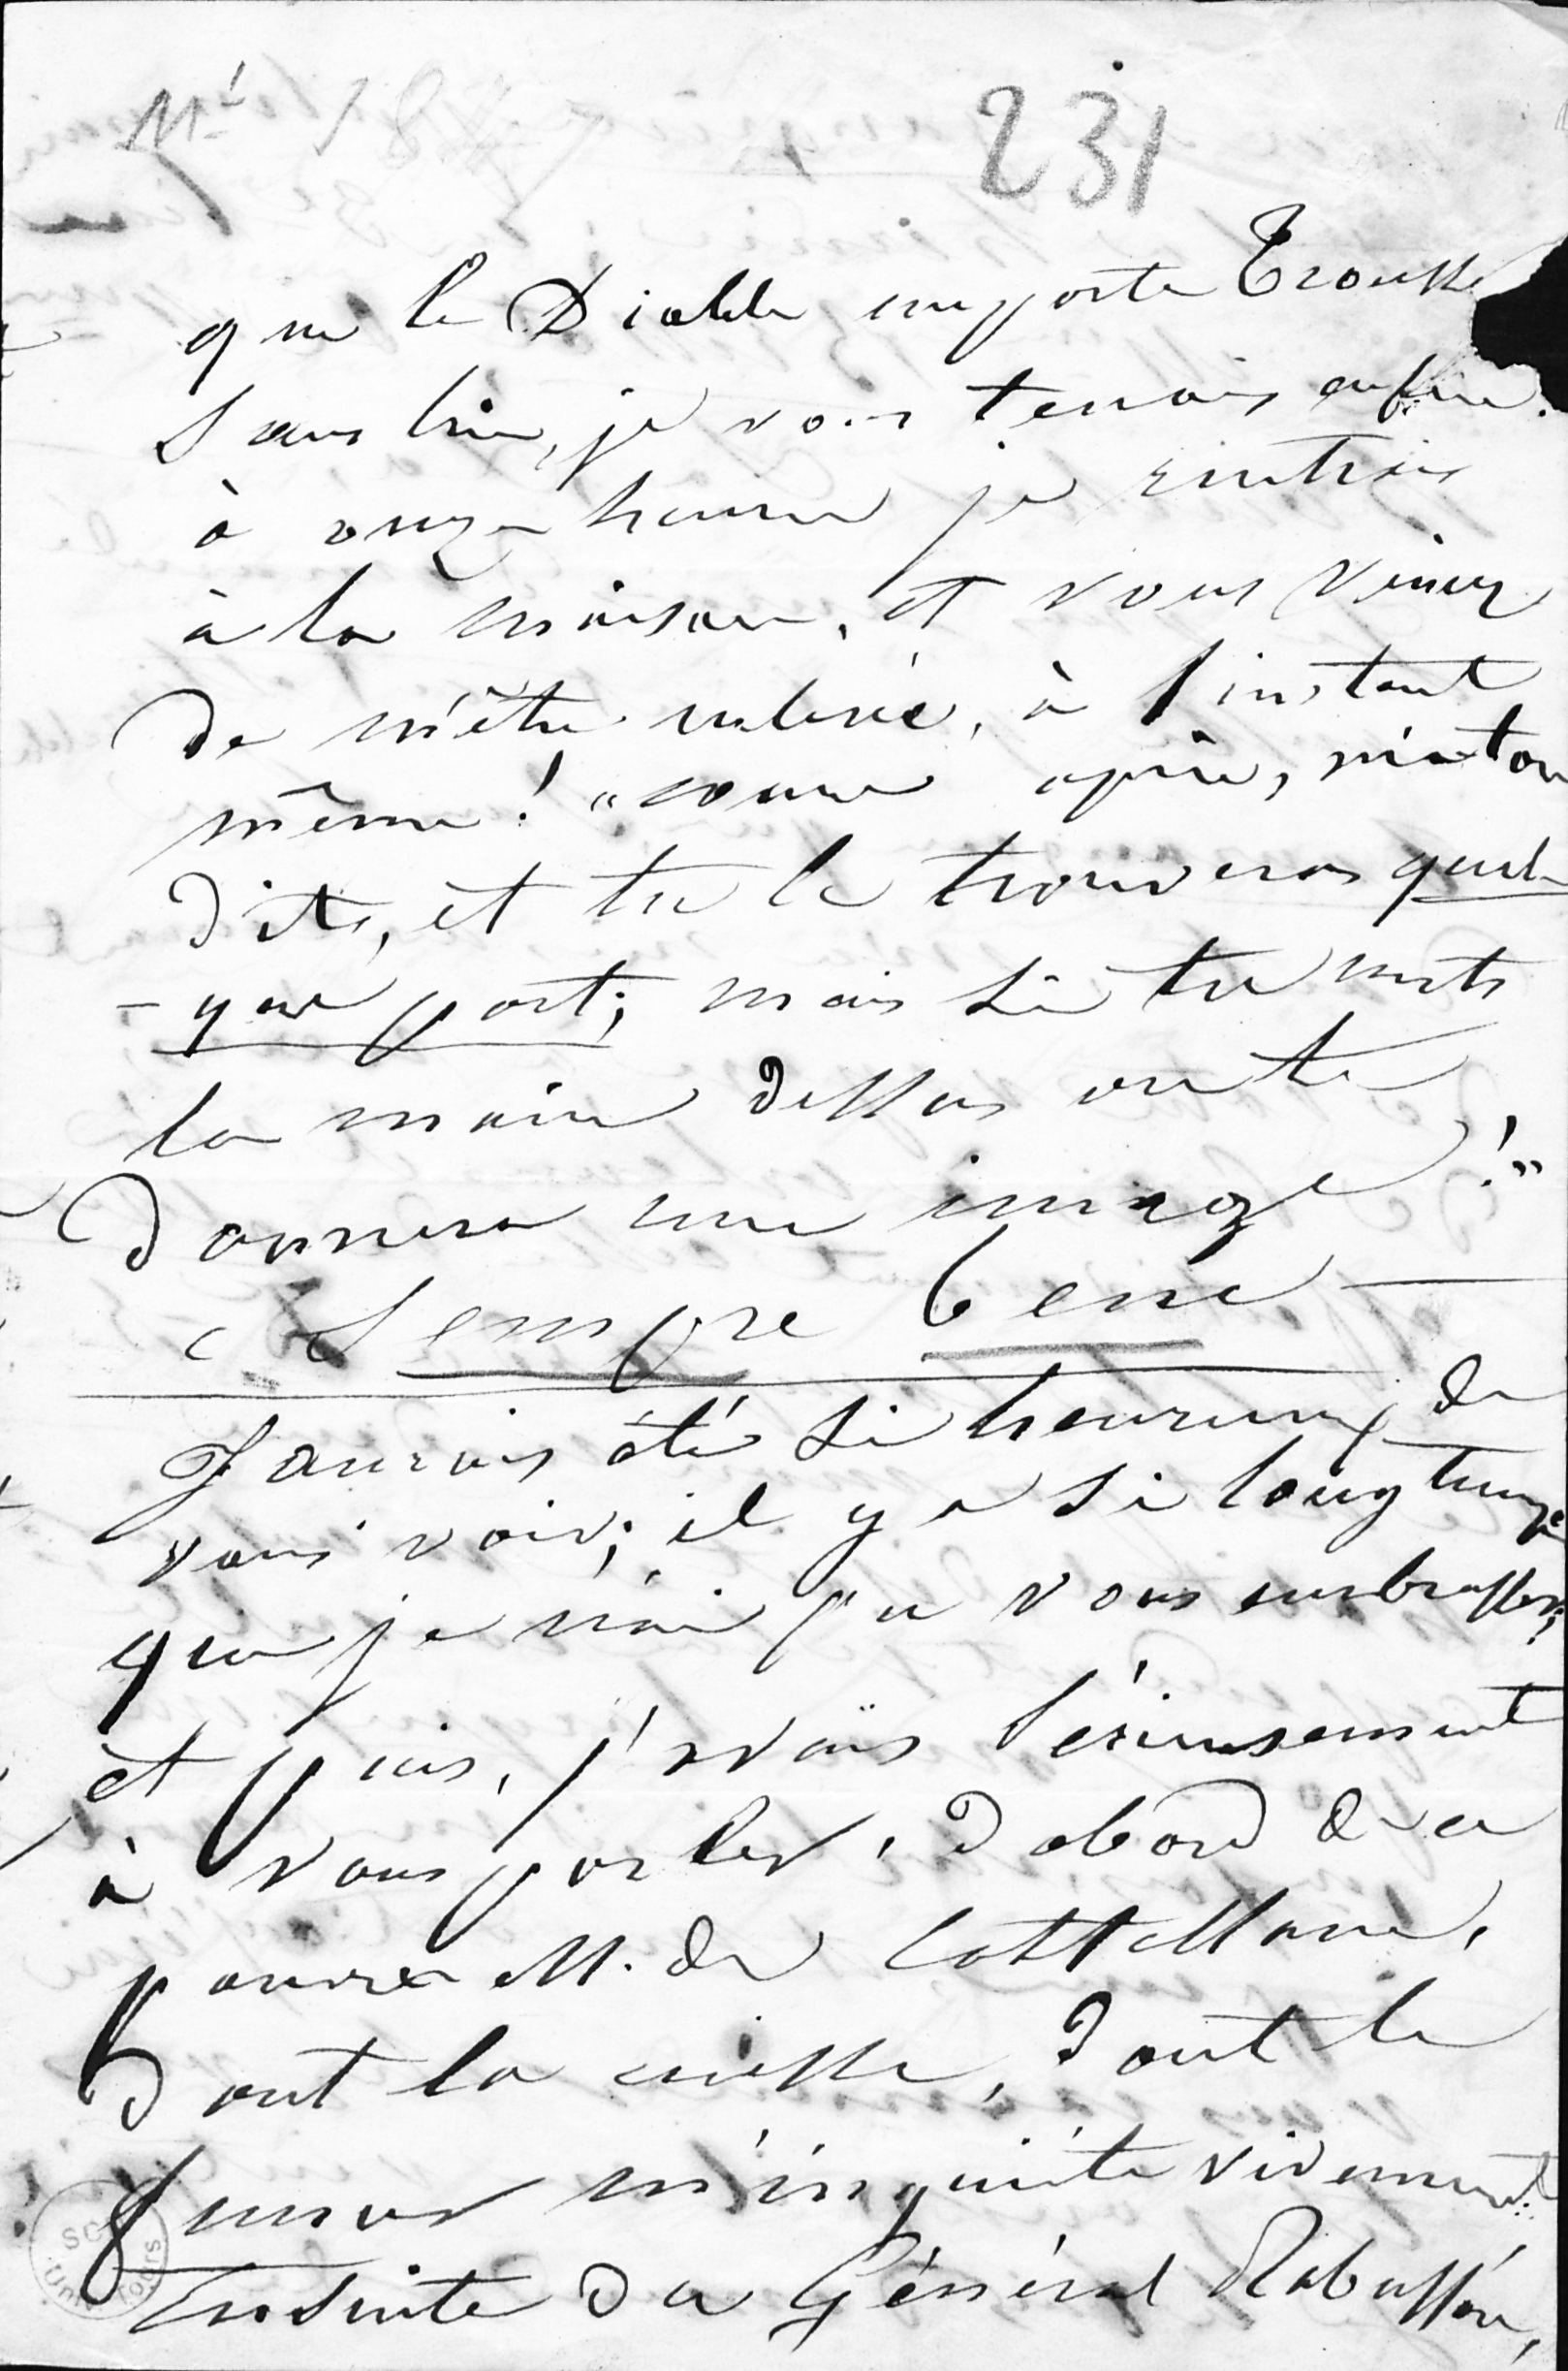 231
que le Diable emporte Trousse
sans lui, je vous tenais enfin.
à onze heures je rentrais
à la maison, et vous veniez
de m'être enlevé, à l'instant
même! "cours après, m'a-t-on
dit, et tu le trouveras quel-
-que part; mais si tu mets
la main dessus on te
donnera une image!"
Sempre bene —
J'aurais été si heureux de
vous voir; il y a si longtemps
que je n'ai pu vous embrasser,
et puis, j'avais sérieusement
à vous parler, d'abord de ce
pauvre M. de Castellane,
dont la cuisse, dont le
fémur m'inquiète vivement.
Ensuite du Général Rabusson,